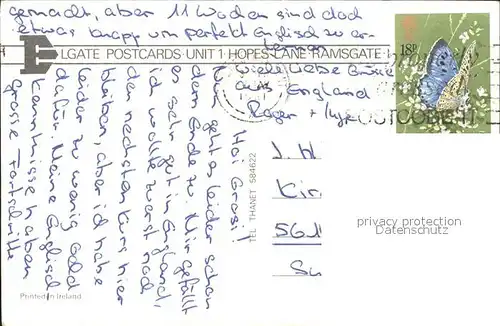 Hoi Grosi!
Nun geht es leider schon
dem Ende zu. Mir gefällt
es sehr gut in England,
ich wollte zuerst noch
den nächsten Kurs hier
bleiben, aber ich habe
leider zu wenig Geld
dafür. Meine Englisch-
kenntnisse haben
grosse Fortschritte
gemacht, aber 11 Wochen sind doch
etwas knapp um perfekt Englisch zu er-
lernen.
Viele liebe Grüsse
aus England
Roger +
ELGATE POSTCARDS UNIT 1 HOPES LANE RAMSGATE
TEL THANET 584622
Printed in Ireland
18P
J. H
Kir
56
Su
privacy protection
Datenschutz